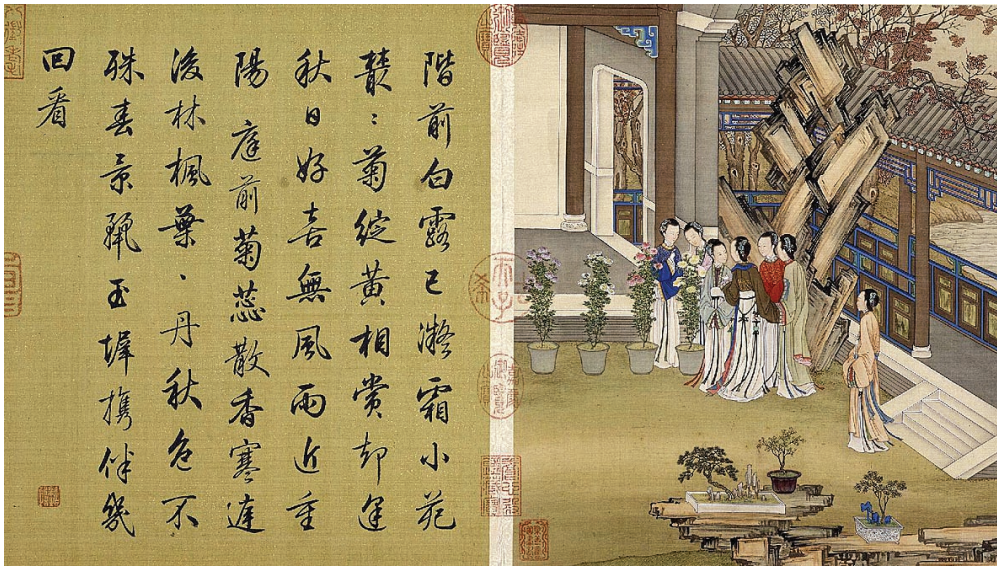 階前白露已凝霜小苑
叢〻菊綻黃相賞却逢
秋日好喜無風雨近重
陽 庭前菊蕊散香寒
後林楓葉〻丹秋色不
殊春景麗玉墀攜伴幾
回看